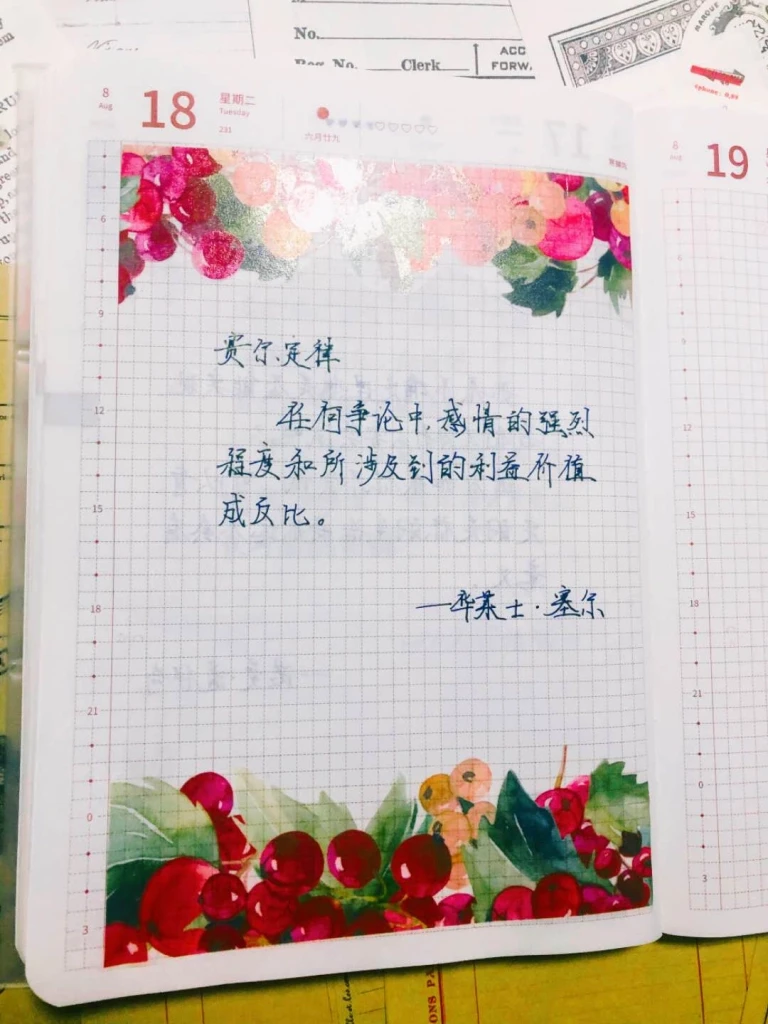 No.
Reg. No. Clerk
ACC
FORW.
8
Aug
18
星期二
Tuesday
231
六月廿九
6
9
12
15
18
21
0
3
赛尔定律
在何争论中,感情的强烈
程度和所涉及到的利益价值
成反比。
—华莱士·塞尔
8
Aug
19
12
15
18
21
0
3
ONS PA